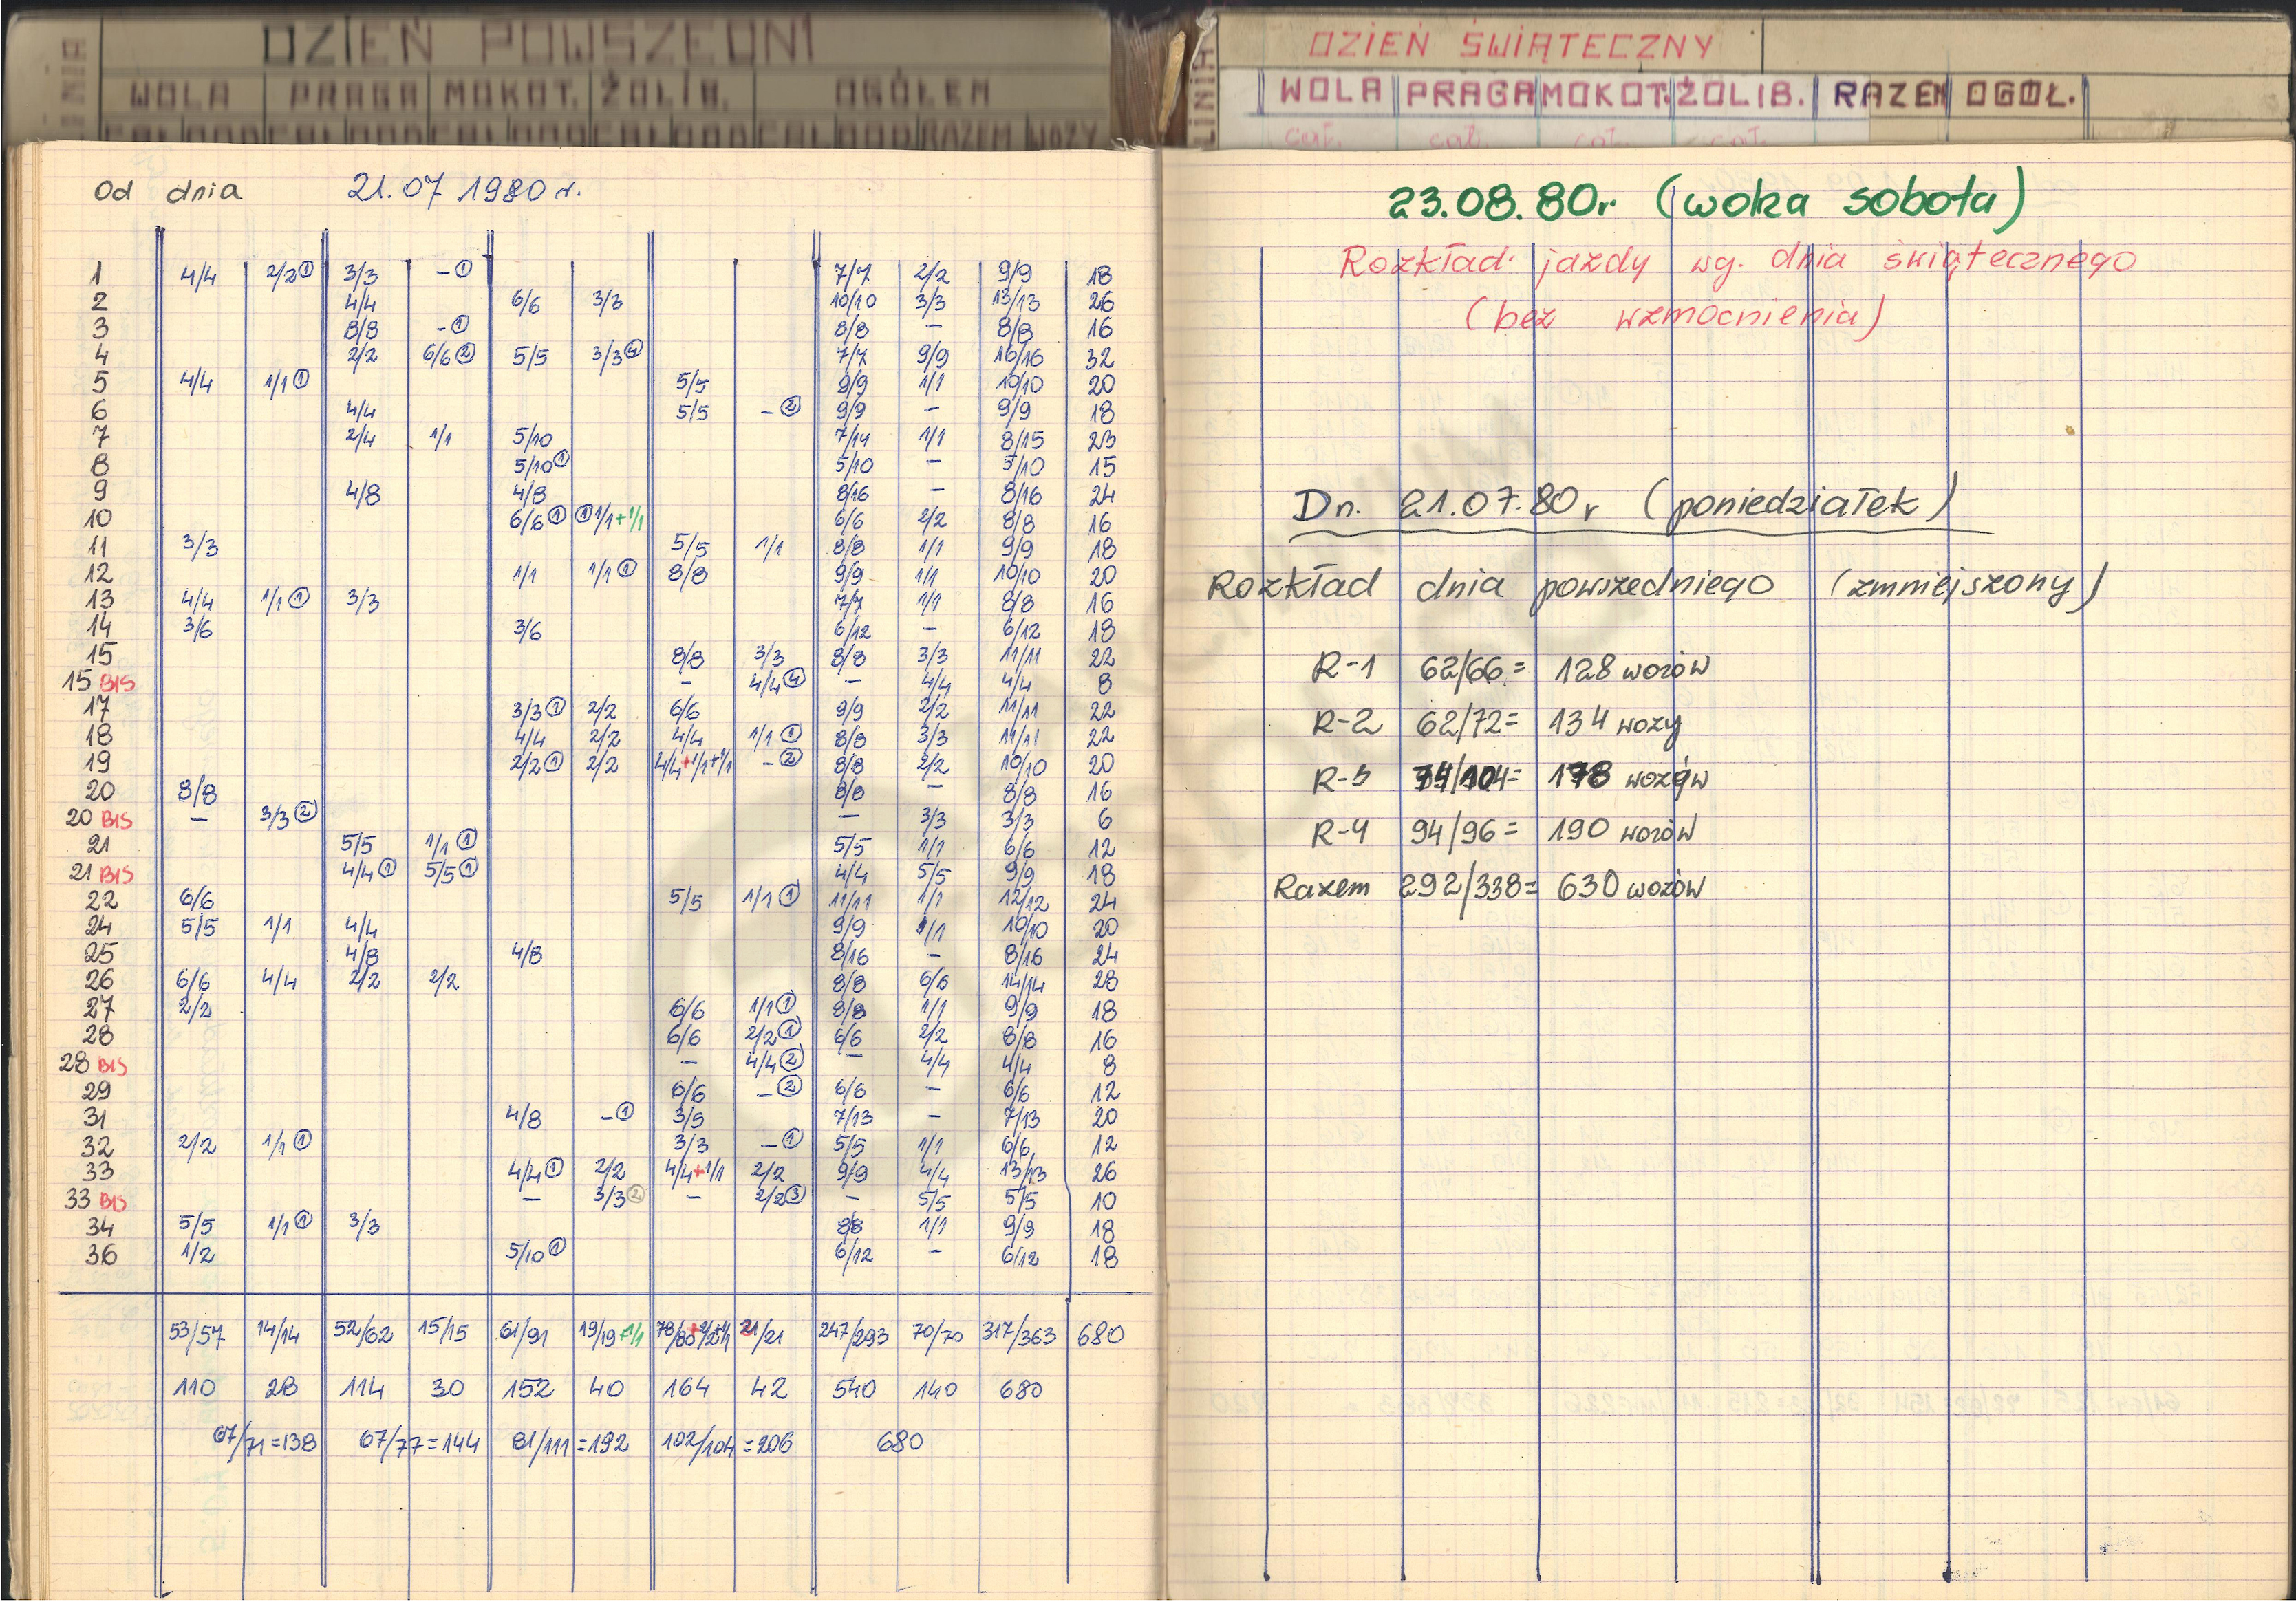 DZIEŃ POWSZEDNI
LINIA
WOLA PRAGA MOKOT. ŻOLIB. OGÓŁEM
CAŁ DOD CAŁ DOD CAŁ DOD CAŁ DOD CAŁ DOD RAZEM WOZY
Od dnia 21.07 1980 r.
1 4/4 2/2① 3/3 -① 7/7 2/2 9/9 18
2 4/4 6/6 3/3 10/10 3/3 13/13 26
3 8/8 -① 8/8 - 8/8 16
4 2/2 6/6② 5/5 3/3④ 7/7 9/9 16/16 32
5 4/4 1/1① 5/5 9/9 1/1 10/10 20
6 4/4 5/5 -② 9/9 - 9/9 18
7 2/4 1/1 5/10 7/14 1/1 8/15 23
8 5/10① 5/10 - 5/10 15
9 4/8 4/8 8/16 - 8/16 24
10 6/6① ①1/1+1/1 6/6 2/2 8/8 16
11 3/3 5/5 1/1 8/8 1/1 9/9 18
12 1/1 1/1① 8/8 9/9 1/1 10/10 20
13 4/4 1/1① 3/3 7/7 1/1 8/8 16
14 3/6 3/6 6/12 - 6/12 18
15 8/8 3/3 8/8 3/3 11/11 22
15 BIS - 4/4④ - 4/4 4/4 8
17 3/3① 2/2 6/6 9/9 2/2 11/11 22
18 4/4 2/2 4/4 1/1① 8/8 3/3 11/11 22
19 2/2① 2/2 4/4+1/1+1/1 -② 8/8 2/2 10/10 20
20 8/8 8/8 - 8/8 16
20 BIS - 3/3② - 3/3 3/3 6
21 5/5 1/1① 5/5 1/1 6/6 12
21 BIS 4/4① 5/5① 4/4 5/5 9/9 18
22 6/6 5/5 1/1① 11/11 1/1 12/12 24
24 5/5 1/1 4/4 9/9 1/1 10/10 20
25 4/8 4/8 8/16 - 8/16 24
26 6/6 4/4 2/2 2/2 8/8 6/6 14/14 28
27 2/2 6/6 1/1① 8/8 1/1 9/9 18
28 6/6 2/2① 6/6 2/2 8/8 16
28 BIS - 4/4② - 4/4 4/4 8
29 6/6 -② 6/6 - 6/6 12
31 4/8 -① 3/5 7/13 - 7/13 20
32 2/2 1/1① 3/3 -① 5/5 1/1 6/6 12
33 4/4① 2/2 4/4+1/1 2/2 9/9 4/4 13/13 26
33 BIS - 3/3② - 2/2③ - 5/5 5/5 10
34 5/5 1/1① 3/3 8/8 1/1 9/9 18
36 1/2 5/10① 6/12 - 6/12 18
53/57 14/14 52/62 15/15 61/91 19/19+1/1 78/80+2/2+1/1 21/21 247/293 70/70 317/363 680
110 28 114 30 152 40 164 42 540 140 680
67/71=138 67/77=144 81/111=192 102/104=206 680
LINIA
DZIEŃ ŚWIĄTECZNY
WOLA PRAGA MOKOT. ŻOLIB. RAZEM OGÓŁ.
cał. cał. cał. cał.
23.08.80r (wolna sobota)
Rozkład jazdy wg. dnia świątecznego
(bez wzmocnienia)
Dn. 21.07.80r (poniedziałek)
Rozkład dnia powszedniego (zmniejszony)
R-1 62/66= 128 wozów
R-2 62/72= 134 wozy
R-3 74/104= 178 wozów
R-4 94/96= 190 wozów
Razem 292/338= 630 wozów